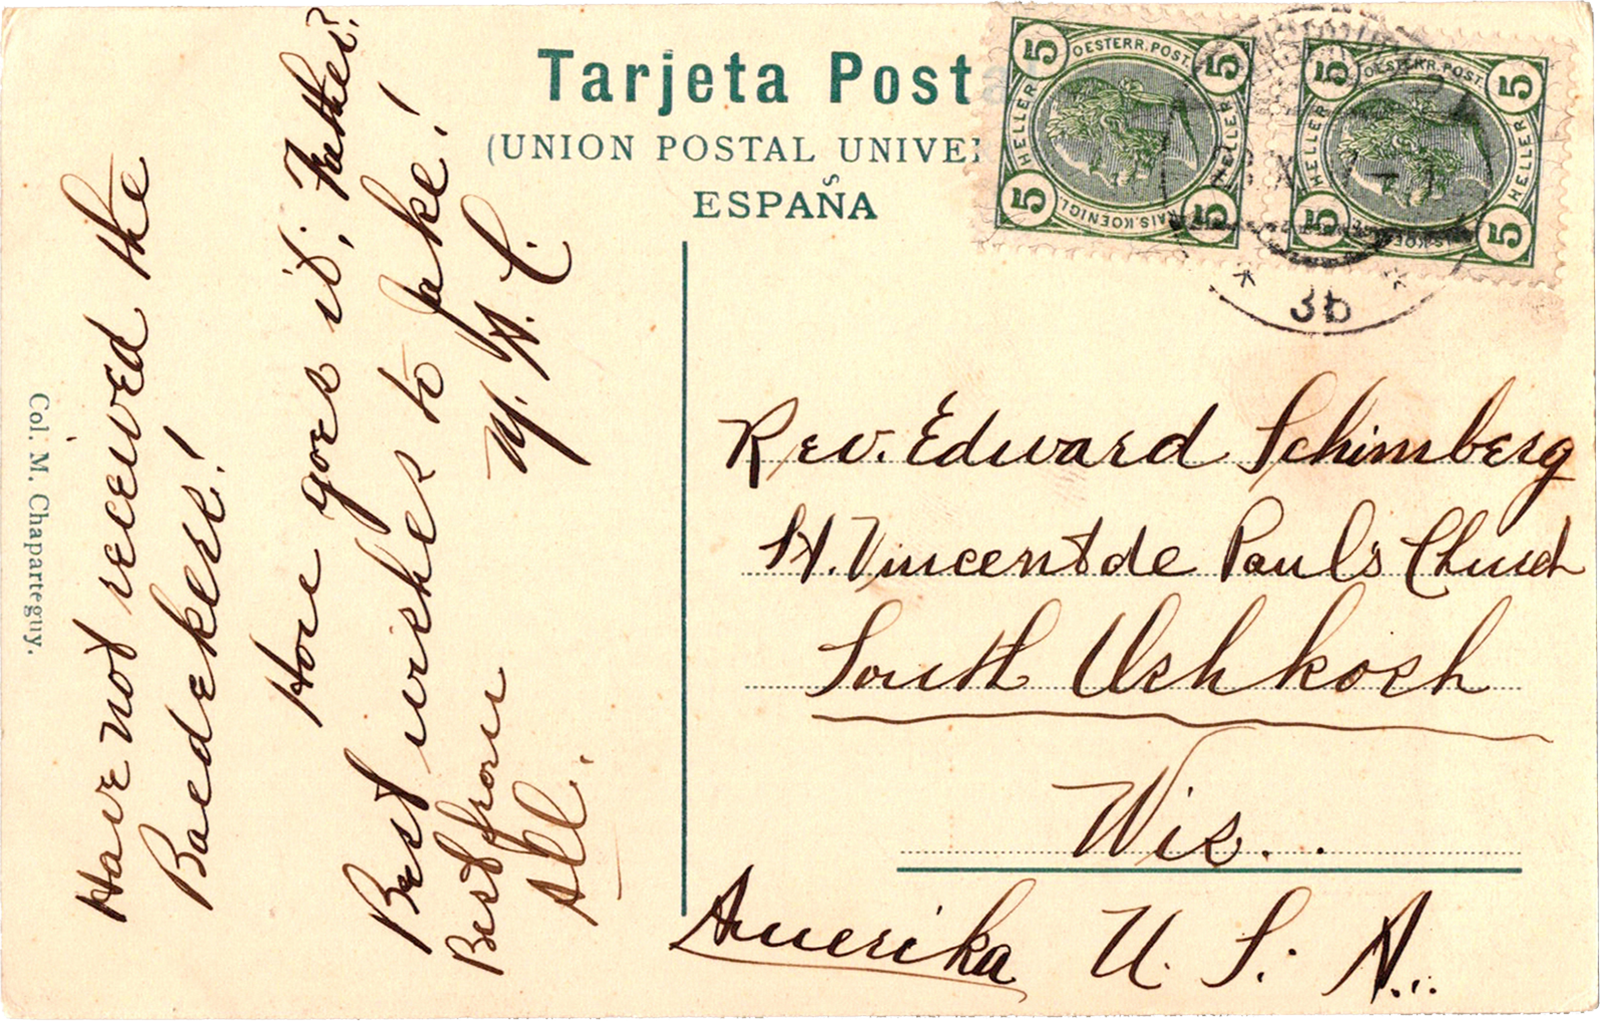 Tarjeta Post
(UNION POSTAL UNIVE
ESPAÑA
5 OESTERR. POST. 5
HELLER HELLER
5 KAIS. KOENIGL. 5
5 OESTERR. POST. 5
HELLER HELLER
5 5
3b
Have not received the
Baedekers!
How goes it, Father?
Best wishes to Jake!
W. H. C.
Best from
All.
Col. M. Chaparteguy.
Rev. Edward Schimberg
St. Vincent de Paul's Church
South Oshkosh
Wis.
Amerika U. S. A.